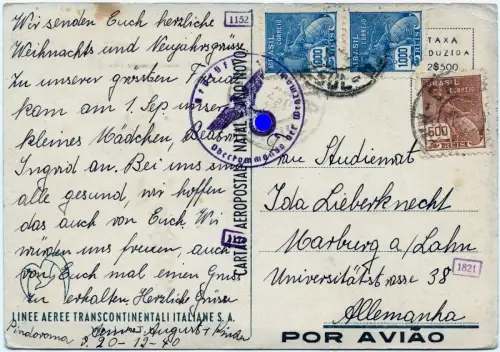 Wir senden Euch herzliche
Weihnachts und Neujahrsgrüsse
Zu unserer grössten Freude
kam am 1 Sep unser
kleines Mädchen,
Ingrid an. Bei uns sind
alle gesund, wir hoffen
das auch von Euch Wir
würden uns freuen, auch
von Euch mal einen Gruss
zu erhalten Herzliche Grüsse
August + Kinder
Pindorama
20-12-40
LINEE AEREE TRANSCONTINENTALI ITALIANE S. A.
1152
CARTÃO AEROPOSTAL NATAL ANO NOVO
Oberkommando der Wehrmacht
BRASIL CORREIO
1000 REIS
BRASIL CORREIO
1000 REIS
TAXA
REDUZIDA
2$500
BRASIL
CORREIO
500
REIS
Frau Studienrat
Ida Lieberknecht
Marburg a/Lahn
Universitätstrasse 38
Allemanha
1821
POR AVIÃO